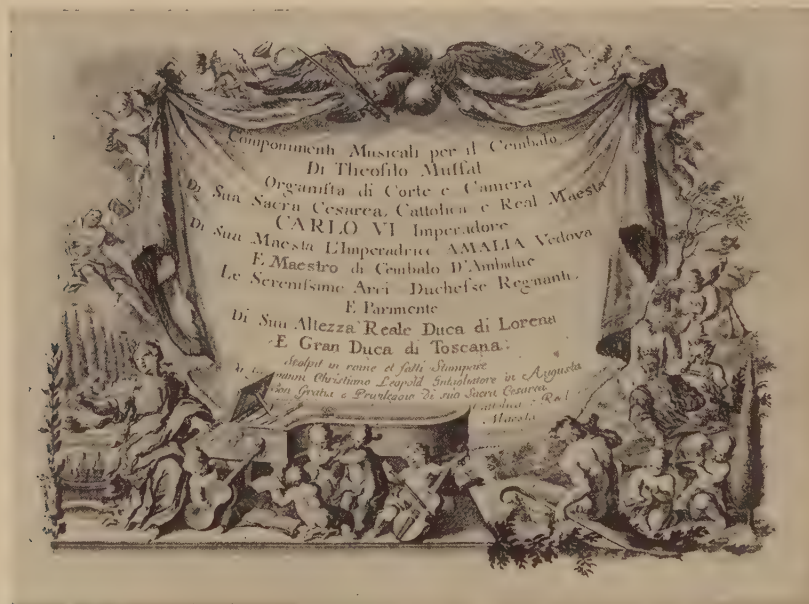 Componimenti Musicali per il Cembalo
Di Theofilo Muffat
Organista di Corte e Camera
Di Sua Sacra Cesarea, Cattolica e Real Maestà
CARLO VI Imperadore
Di Sua Maestà L'Imperadrice AMALIA Vedova
E Maestro di Cembalo D'Ambidue
Le Serenissime Arci Duchesse Regnanti.
E Parimente
Di Sua Altezza Reale Duca di Lorena
E Gran Duca di Toscana.
Scolpit in rame et fatti Stampare
Christiano Leopold Intagliatore in Augusta
Con Gratia e Privilegio Di sua Sacra Cesarea
Cattolica Real
Maestà